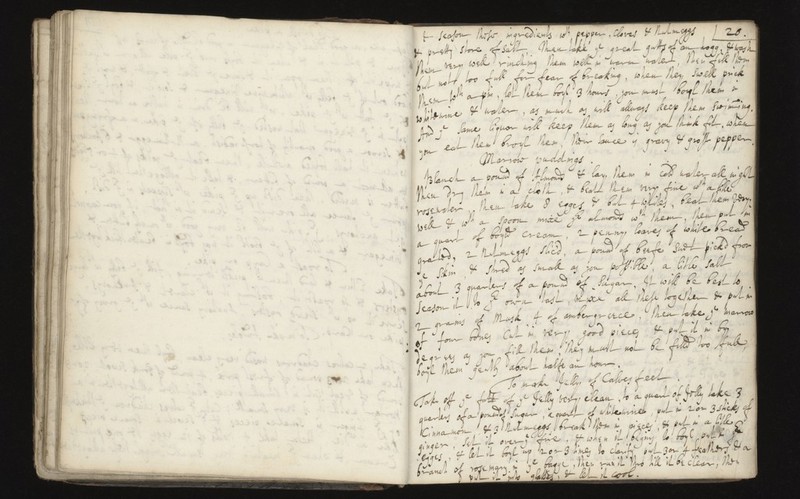 & season these ingredients wth pepper, cloves & Nutmeggs 20.
& pretty store of salt, then take ye great guts of an hogg, & wash
them very well rinsing them well in warm water, then fill them
but not too full for fear of breaking, when they swell prick
them wth a pin, let them boyl 3 hours, you must boyl them in
whitewine & water, as much as will allways keep them swimming,
And ye same liquor will keep them as long as you think fit, when
you eat them broyl them, their sauce is gravy & gross pepper.
Marrow puddings.
Blanch a pound of Almonds & lay them in cold water all night
then dry them in a cloth, & beat them very fine wth a little
rosewater, then take 8 egges, & but 4 whites, beat them very
well & wth a spoon mixe ye almonds wth them, then put in
a quart of boyld cream, 2 penny loaves of white bread
grated, 2 Nutmeggs sliced, a pound of biefe suet pickd from
ye skin & shred as small as you possible, a litle salt
about 3 quarters of a pound of Sugar, it will be best to
season it to yr own tast, mixe all these together & put in
2 grains of Musk 4 of ambergreece, then take ye marrow
of four bones cut in very good pieces & put it in by
degrees as you fill them, they must not be fill'd too full,
boyl them gently about halfe an hour.
To make Jelly of Calves feet.
Take off ye fatt of ye Jelly very clean, to a quart of Jelly take 3
quarters of a pound of Sugar, of whitewine, put in 2 or 3 sticks of
Cinnamon, & 3 Nutmeggs break them in pieces, & put in a litle
ginger, set it over ye fire, & when it begins to boyl put in
egges, & let it boyl up 2 or 3 times to clarify put 3 or 4 feathers & a
branch of rosemary in ye bagge, then run it thro till it be clear, then
put it into glasses & let it cool.